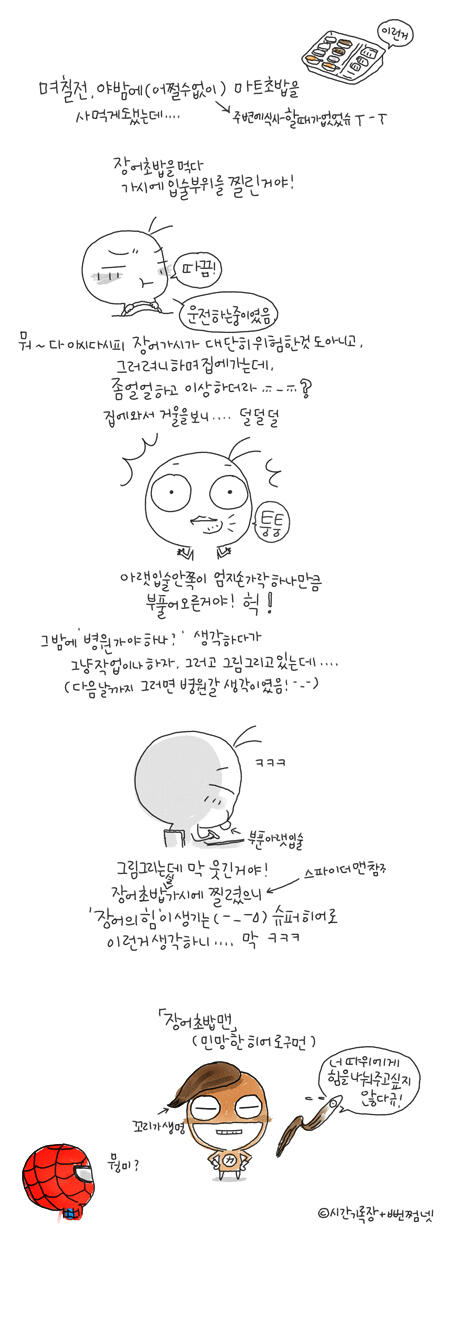 이런거
며칠전, 야밤에(어쩔수없이) 마트초밥을
사먹게됐는데....
주변에식사할때가없었슈 T-T
장어초밥을먹다
가시에 입술부위를 찔린거야!
따끔!
운전하는중이였음
뭐~ 다이시다시피 장어가시가 대단히위험한것도아니고,
그러려니하며집에가는데,
좀얼얼하고 이상하더라 ㅠ-ㅠ?
집에와서 거울을보니.... 덜덜덜
퉁퉁
아랫입술안쪽이 엄지손가락하나만큼
부풀어오른거야! 헉!
그밤에 '병원가야하나?' 생각하다가
그냥작업이나하자, 그러고 그림그리고있는데....
(다음날까지 그러면 병원갈 생각이였음! -.-)
ㅋㅋㅋ
부푼아랫입술
그림그리는데 막 웃긴거야!
장어초밥가시에 찔렸으니
스파이더맨참조
'장어의힘'이생기는(-_-) 슈퍼히어로
이런거생각하니.... 막 ㅋㅋㅋ
「장어초밥맨」
(민망한히어로구먼)
너따위에게
힘을나눠주고싶지
않다규!
꼬리가생명
뭥미?
©시간기록장+뻔쩜넷